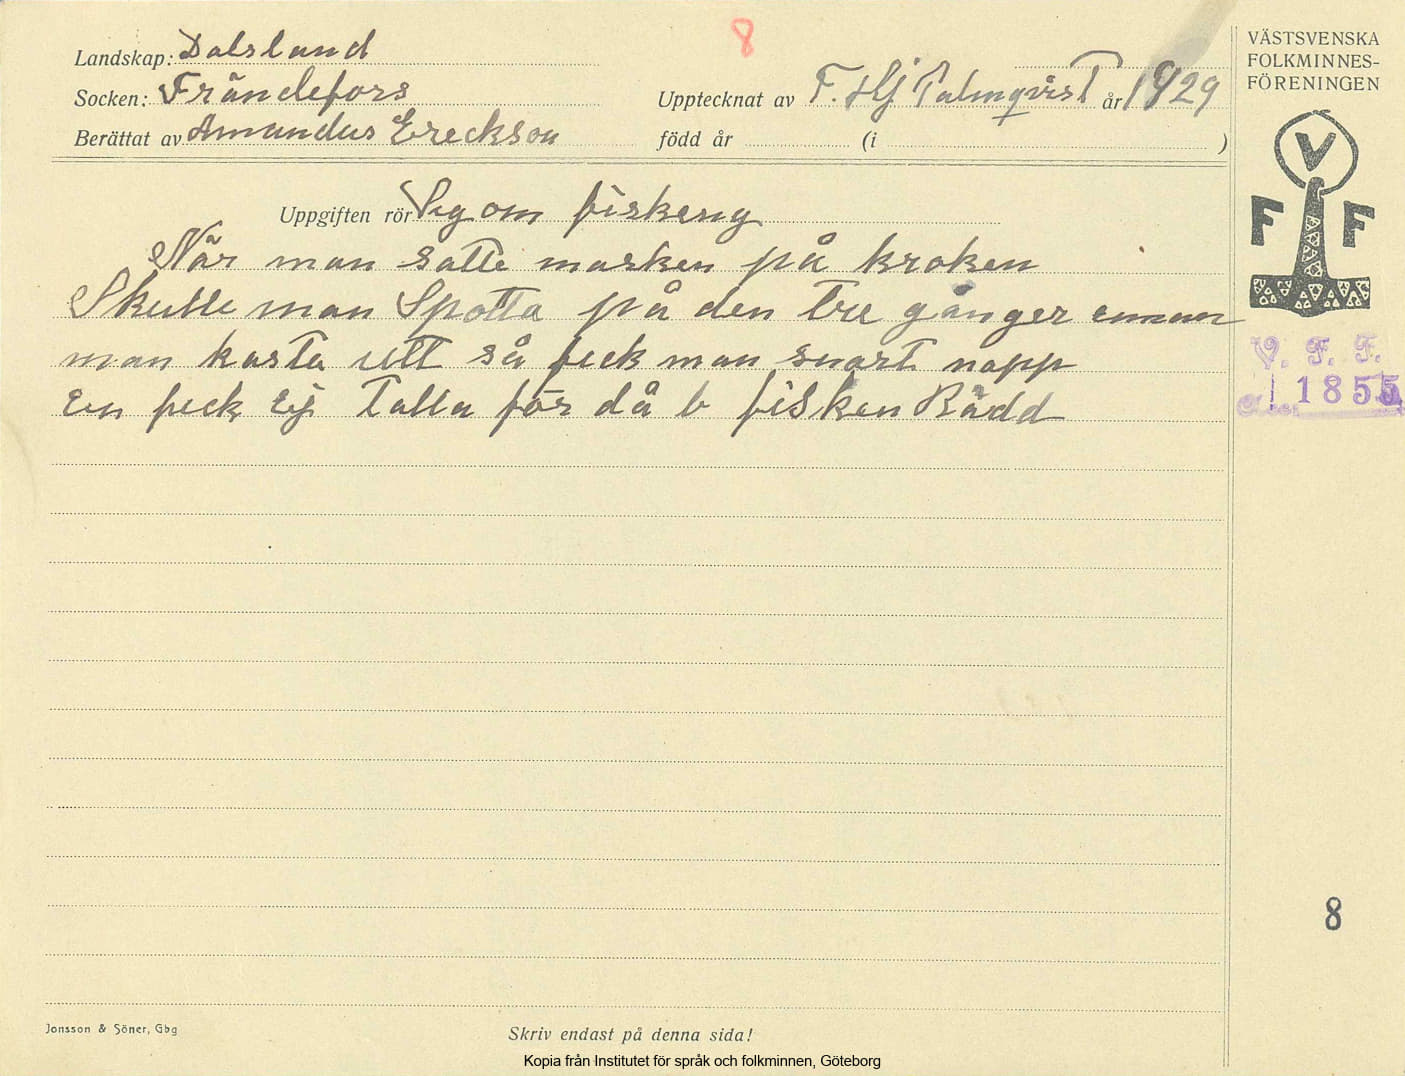 8
Landskap: Dalsland
Socken: Frändefors
Berättat av Amandus Ereckson
Upptecknat av F. Hj Palmqvist år 1929
född år (i )
Uppgiften rör Sig om fiskeng
När man satte masken på kroken
Skulle man Spotta på den tre gånger ennan
man kasta utt så feck man snart napp
En feck Ej Talla för då b fisken Rädd
VÄSTSVENSKA
FOLKMINNES-
FÖRENINGEN
V
F F
V. F. F.
1855
8
Jonsson & Söner, Gbg
Skriv endast på denna sida!
Kopia från Institutet för språk och folkminnen, Göteborg